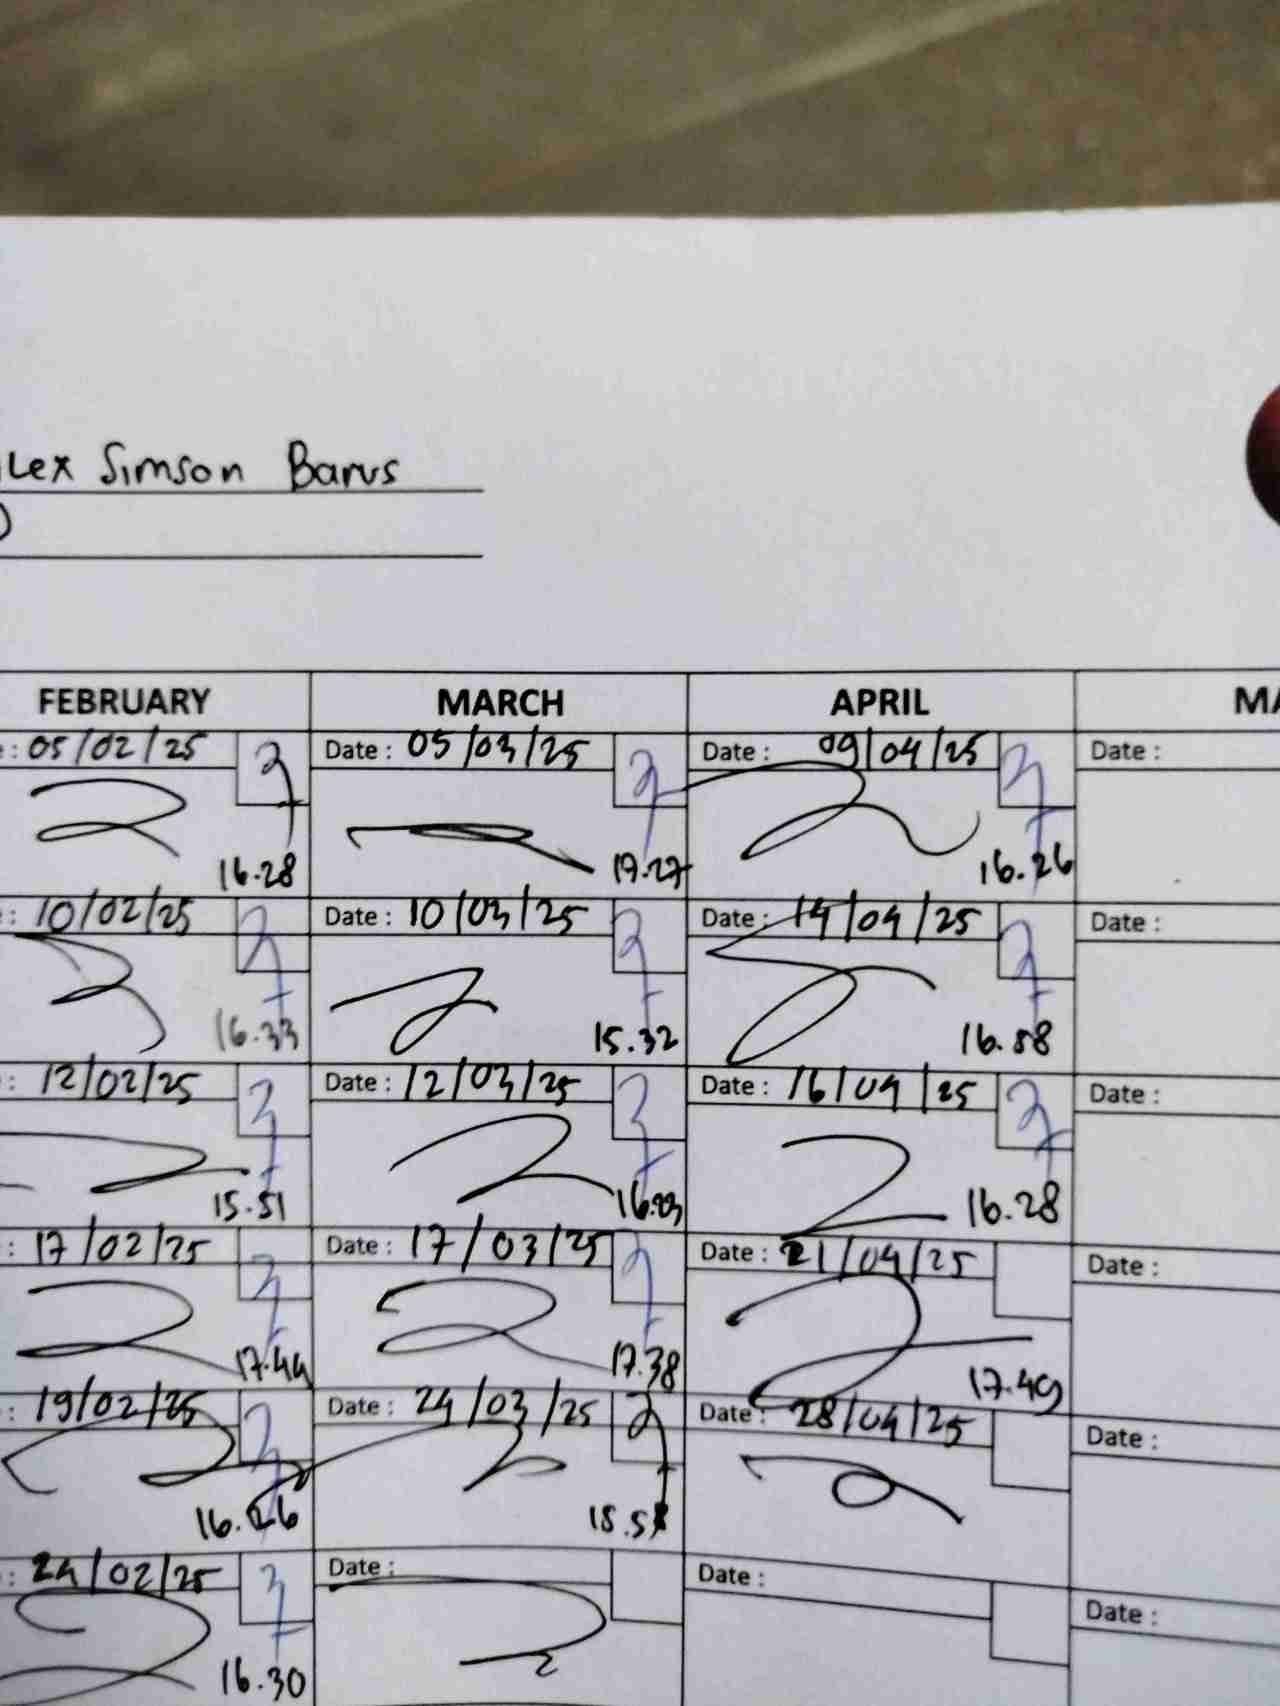 Lex Simson Barus
FEBRUARY MARCH APRIL MA
: 05/02/25 Date : 05/03/25 Date : 09/04/25 Date :
16.28 17.27 16.26
: 10/02/25 Date : 10/03/25 Date : 14/04/25 Date :
16.33 15.32 16.58
: 12/02/25 Date : 12/03/25 Date : 16/04/25 Date :
15.51 16.03 16.28
: 17/02/25 Date : 17/03/25 Date : 21/04/25 Date :
17.44 17.38 17.49
: 19/02/25 Date : 24/03/25 Date : 28/04/25 Date :
16.26
: 24/02/25 Date : Date : Date :
16.30